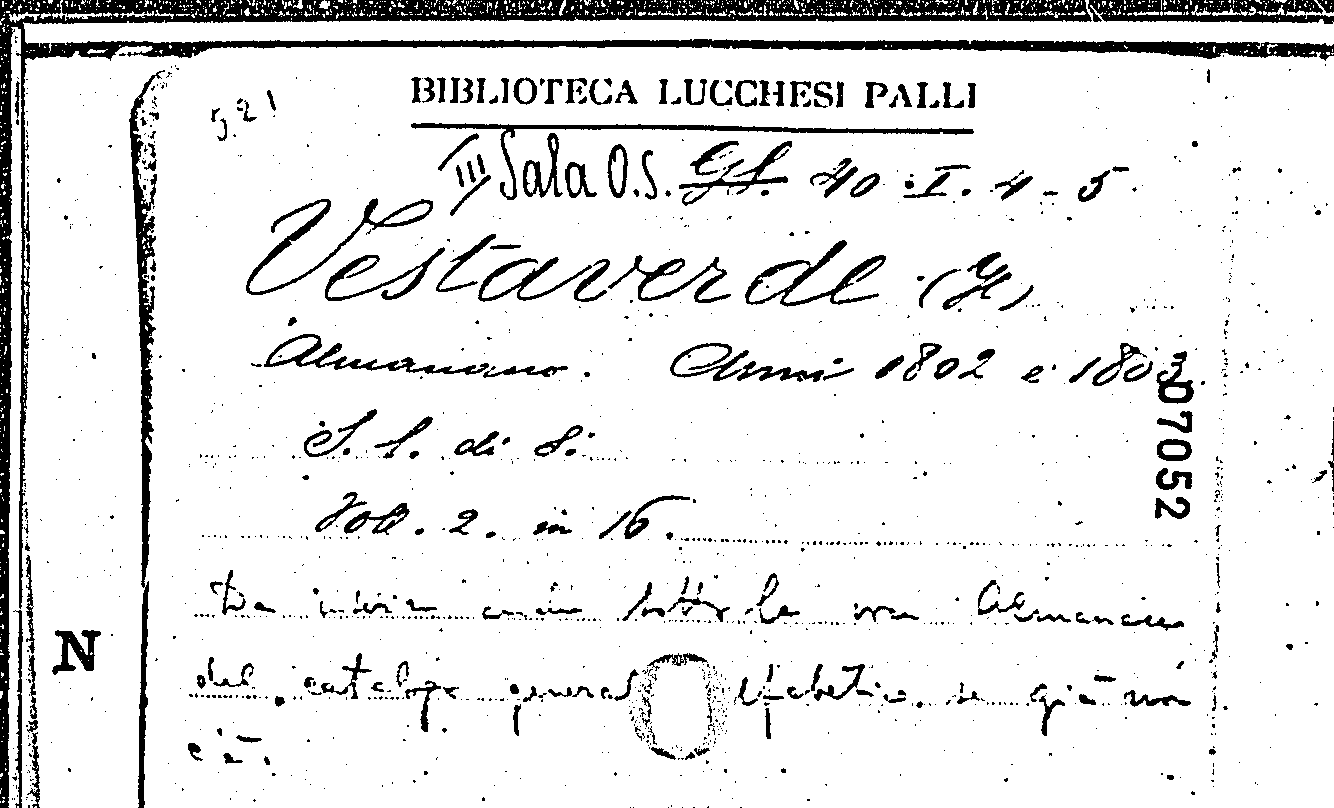 521
BIBLIOTECA LUCCHESI PALLI
III Sala O.S. G.S. 40. I. 4-5
Vestaverde (Il)
Almanacco. Anni 1802 e 1803.
S. l. di S.
Vol. 2. in 16.
07052
Da inserire anche sotto la voce Almanacco
del catalogo generale alfabetico, se già non
c'è.
N